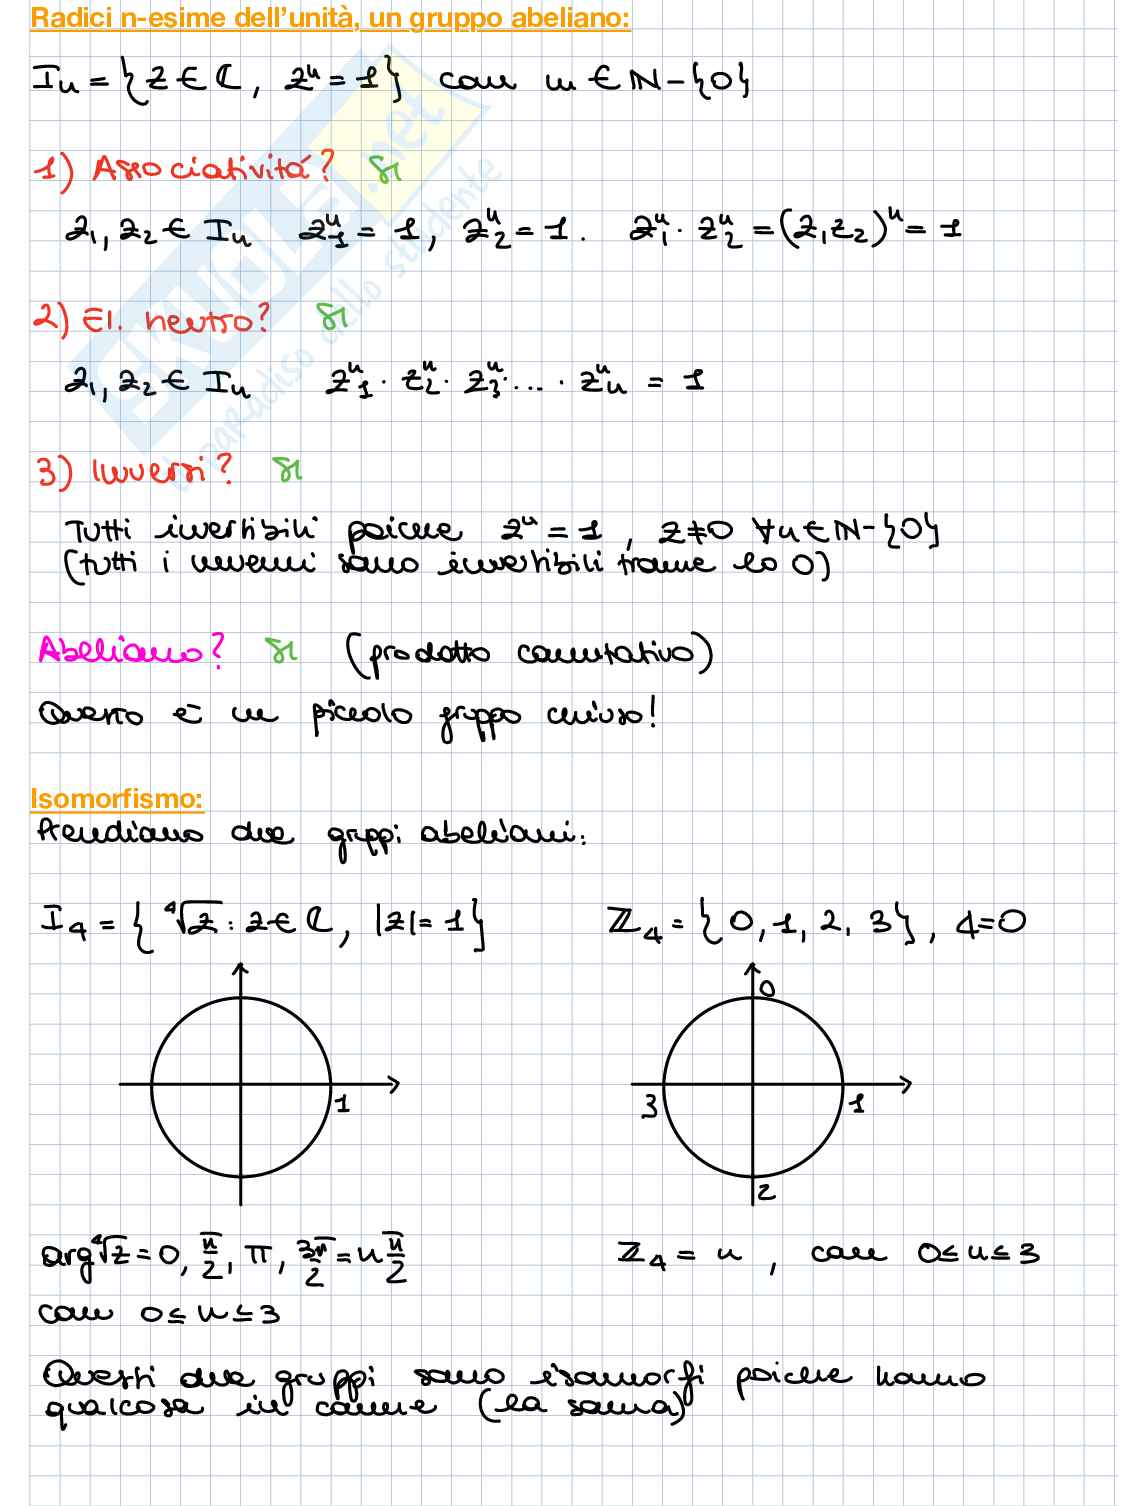 Radici n-esime dell'unità, un gruppo abeliano:
Iₙ = {z ∈ ℂ, zⁿ = 1} con n ∈ ℕ-{0}
1) Associatività? Sì
z₁, z₂ ∈ Iₙ z₁ⁿ = 1, z₂ⁿ = 1. z₁ⁿ · z₂ⁿ = (z₁z₂)ⁿ = 1
2) El. neutro? Sì
z₁, z₂ ∈ Iₙ z₁ⁿ · z₂ⁿ · z₃ⁿ · ... · zₙⁿ = 1
3) Inversi? Sì
Tutti invertibili poiche zⁿ = 1, z≠0 ∀n∈ℕ-{0}
(tutti i numeri sono invertibili tranne lo 0)
Abeliano? Sì (prodotto commutativo)
Questo è un piccolo gruppo chiuso!
Isomorfismo:
Prendiamo due gruppi abeliani:
I₄ = {⁴√z : z∈ℂ, |z|=1} ℤ₄ = {0, 1, 2, 3}, 4=0
0
1 3 1
2
arg ⁴√z = 0, π/2, π, 3π/2 = n π/2 ℤ₄ = n, con 0≤n≤3
con 0≤n≤3
Questi due gruppi sono isomorfi poiche hanno
qualcosa in comune (la somma)
SKUOLA.net
il paradiso dello studente